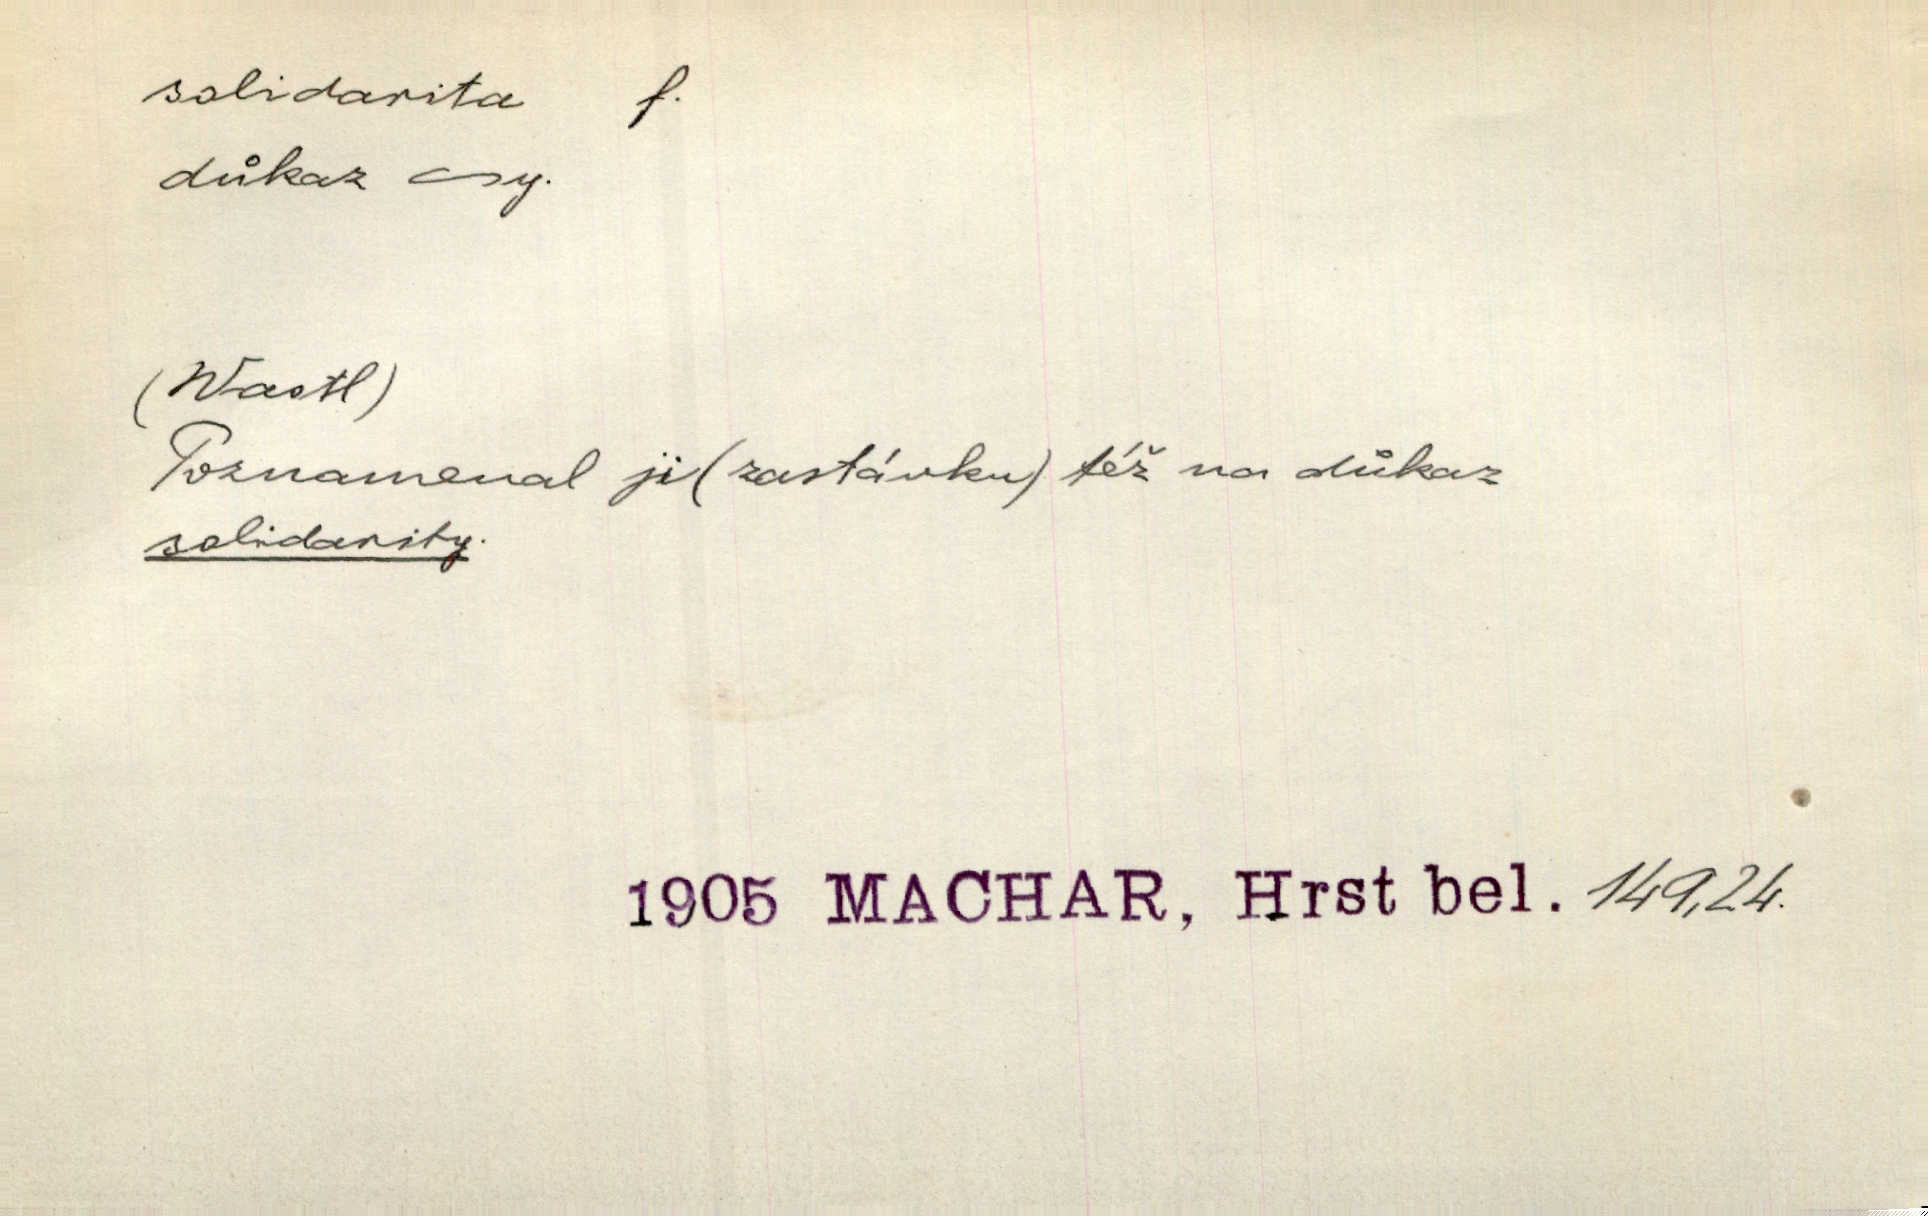 solidarita f.
důkaz ~y.
(Wastl)
Poznamenal ji (zastávku) též na důkaz
solidarity.
1905 MACHAR, Hrst bel. 149,24.